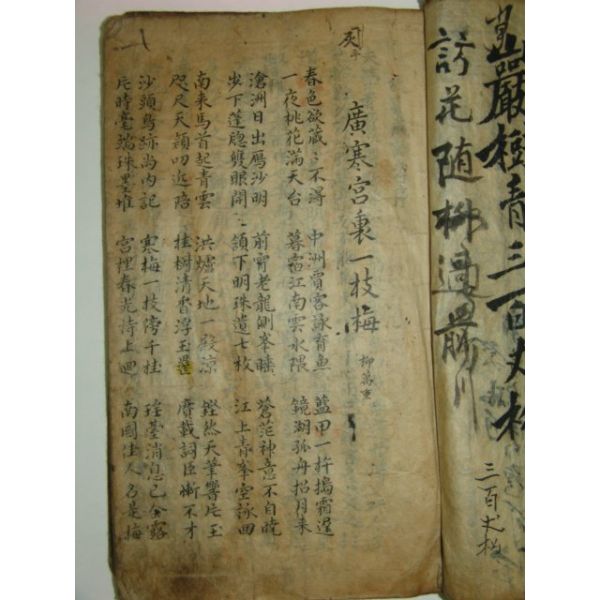 巖樹青三百丈松
訪花随柳過前川
三百丈松
廣寒宮裏一枝梅 柳萬重
春色欲藏〻不得 中洲賈客詠魚 藍甲一杵搗霜遲
一夜桃花滿天台 暮宿江南雲水隈 鏡湖孤舟招月来
滄洲日出鴈沙明 前宵老龍側峯睡 蒼茫神意不自曉
步下蓬牕雙眼開 頷下明珠遺七枚 江上青峯空詠回
南来馬首起青雲 洪爐天地一殿涼 鏗然天筆響片玉
咫尺天顔叨近陪 桂樹清香浮玉罍 賡載詞臣慚不才
沙頭鳥跡尚内記 寒梅一枝傍千桂 瑤臺消息已全露
片時毫端珠墨堆 宮裡春光詩上廻 南國佳人名是梅